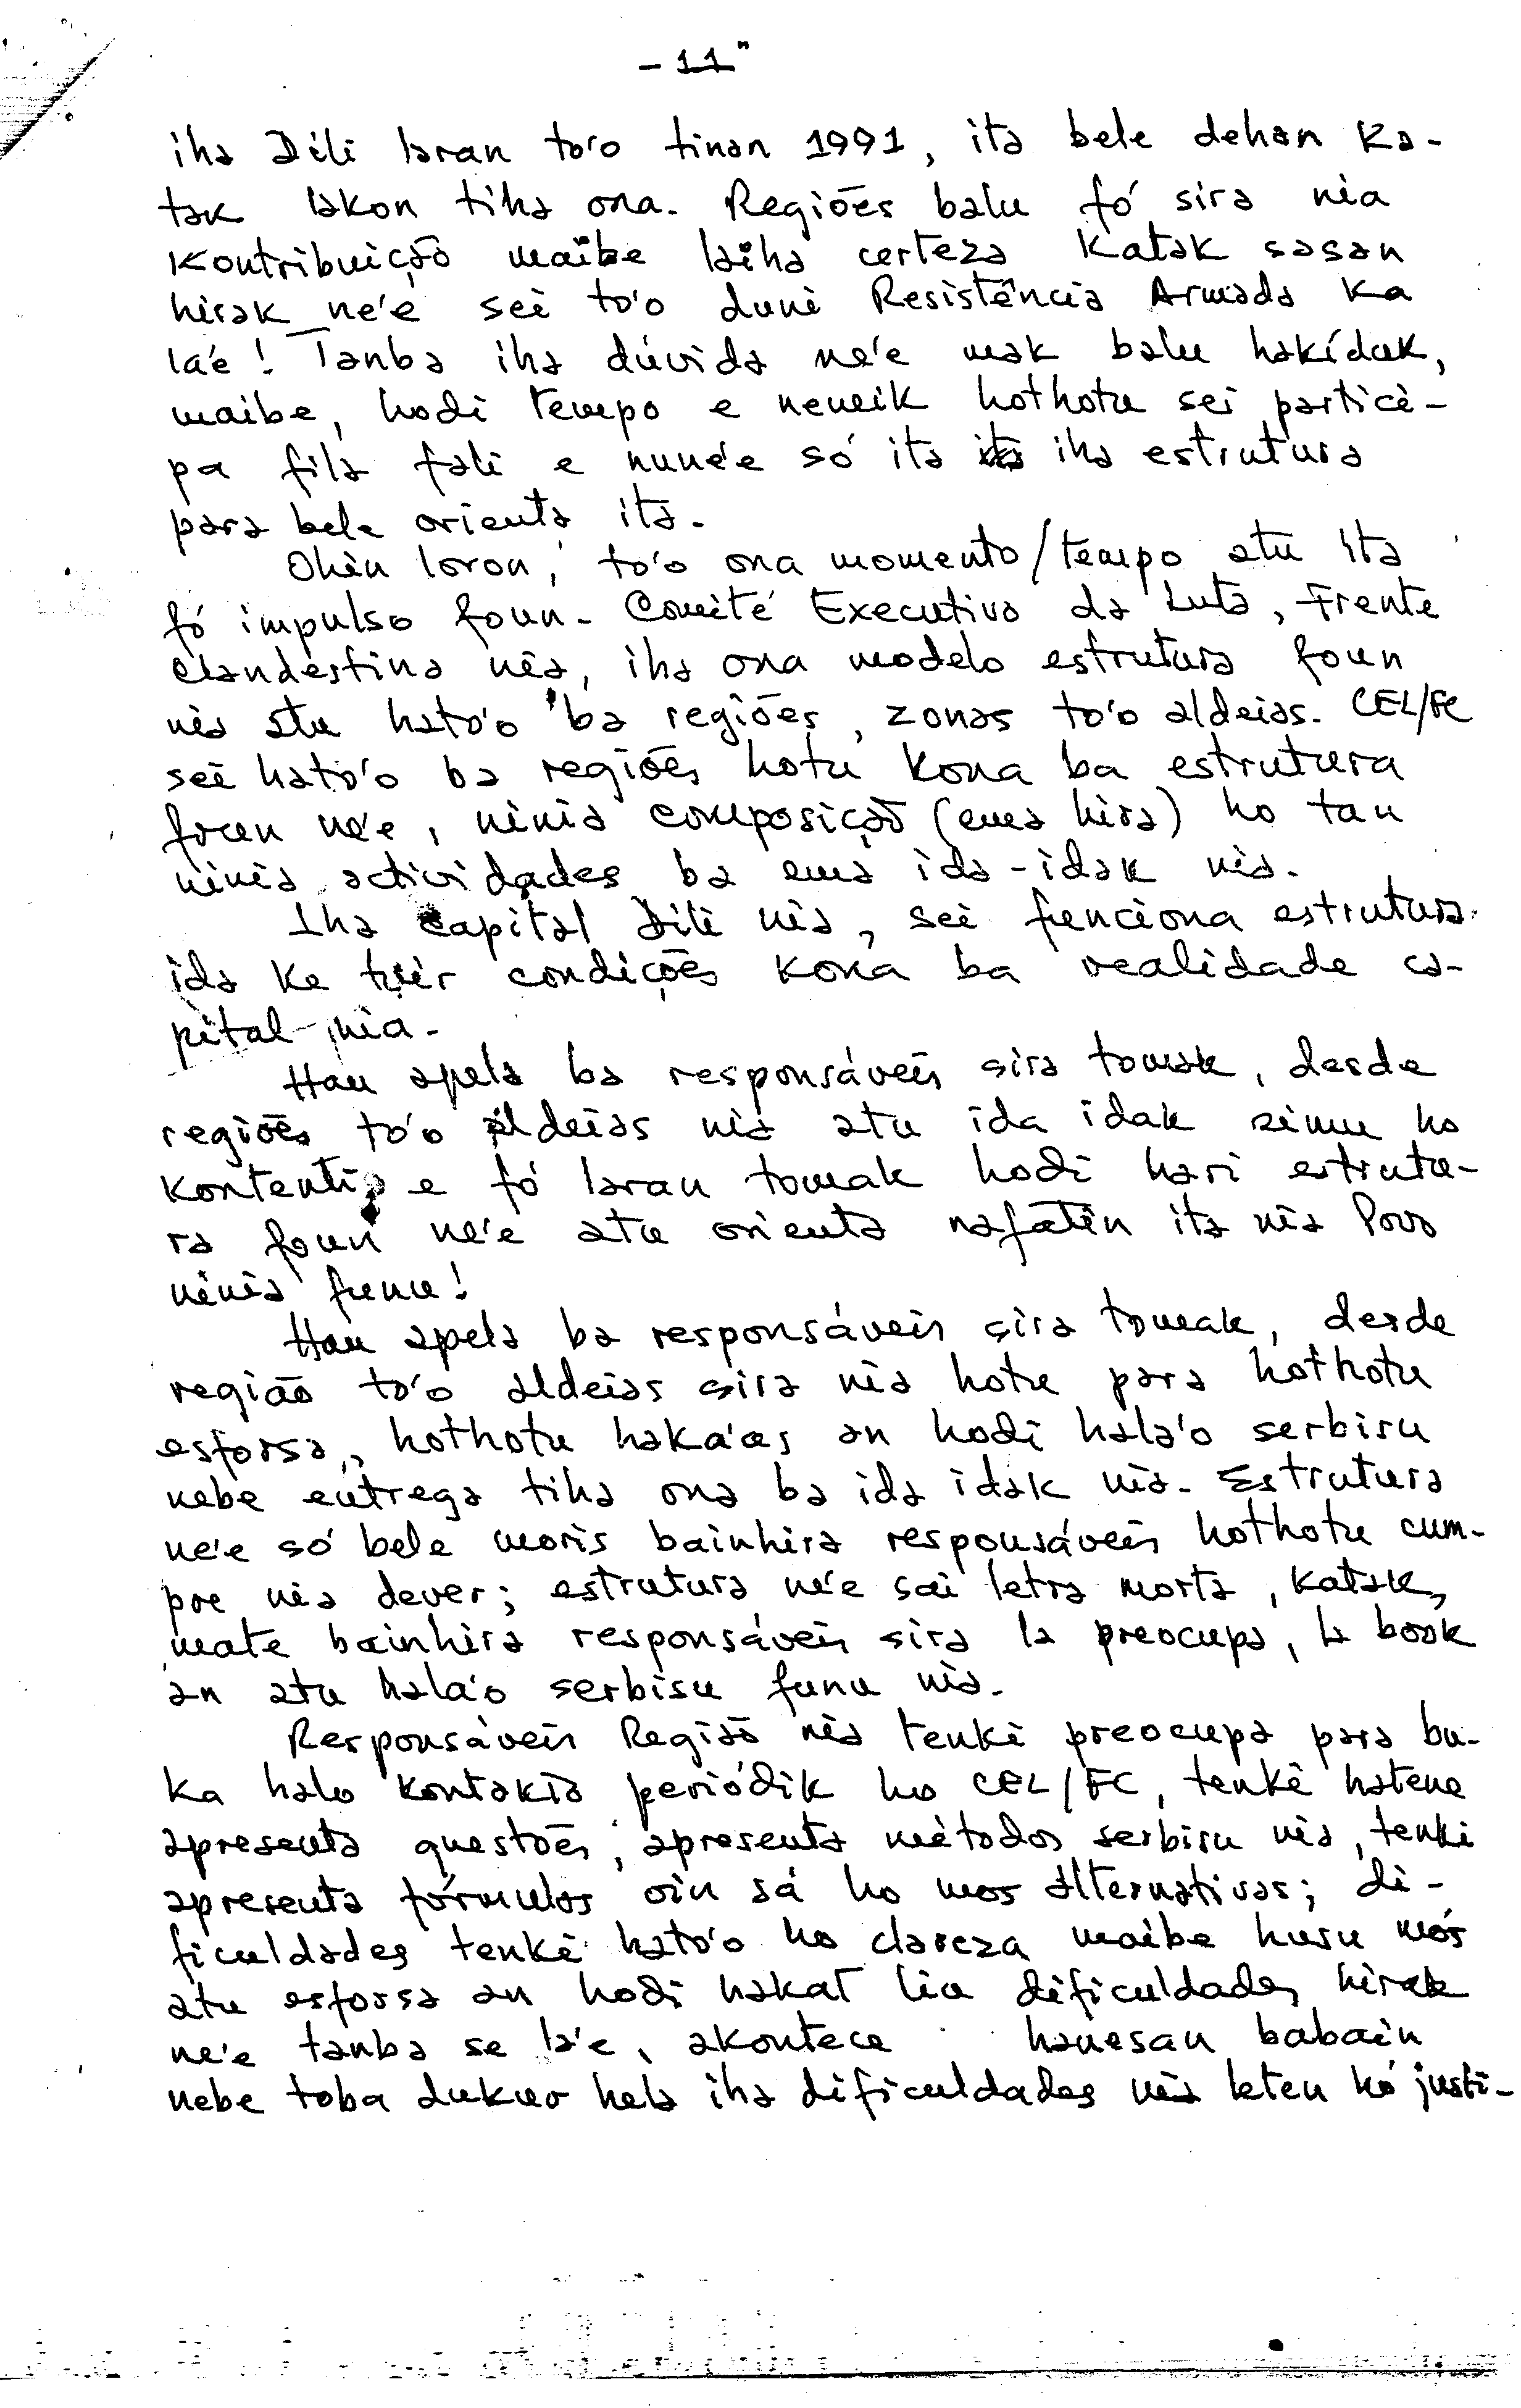 - 11 -
iha Dili laran to'o tinan 1991, ita bele dehan ka-
tak lakon tiha ona. Regiões balu fó sira nia
kontribuição maibe laiha certeza katak sasan
hirak ne'e sei to'o duni Resistência Armada ka
la'e! Tanba iha dúvida ne'e mak balu hakíduk,
maibe, hodi tempo e neneik hothotu sei partici-
pa fila fali e nune'e só ita iha estrutura
para bele orienta ita.
Ohin loron, to'o ona momento/tempo atu ita
fó impulso foun. Comité Executivo da Luta, Frente
Clandestina nia, iha ona modelo estrutura foun
nia atu hato'o ba regiões, zonas to'o aldeias. CEL/FC
sei hato'o ba regiões hotu kona ba estrutura
foun ne'e, ninia composição (ema hira) ho tan
ninia actividades ba ema ida-idak nia.
Iha capital Dili nia, sei funciona estrutura
ida ke tuir condições kona ba realidade ca-
pital nia.
Hau apela ba responsáveis sira tomak, desde
regiões to'o aldeias nia atu ida idak simu ho
kontenti, e fó laran tomak hodi hari estrutu-
ra foun ne'e atu orienta nafatin ita nia Povo
ninia funu!
Hau apela ba responsáveis sira tomak, desde
região to'o aldeias sira nia hotu para hothotu
esforsa, hothotu haka'as an hodi hala'o serbisu
nebe entrega tiha ona ba ida idak nia. Estrutura
ne'e só bele moris bainhira responsáveis hothotu cum-
pre nia dever; estrutura ne'e sai letra morta, katak,
mate bainhira responsáveis sira la preocupa, la book
an atu hala'o serbisu funu nia.
Responsáveis Região nia tenki preocupa para bu-
ka halo kontakto periódik ho CEL/FC, tenki hatene
apresenta questões, apresenta métodos serbisu nia, tenki
apresenta fórmulas oin sá ho mos alternativas; di-
ficuldades tenki hato'o ho clareza maibe husu mós
atu esforsa an hodi hakat liu dificuldades hirak
ne'e tanba se la'e, akontece hanesan babain
nebe toba dukur hela iha dificuldades nia leten hó justi-